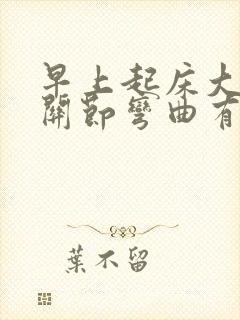 早上起床大
關節彎曲有
葉不留